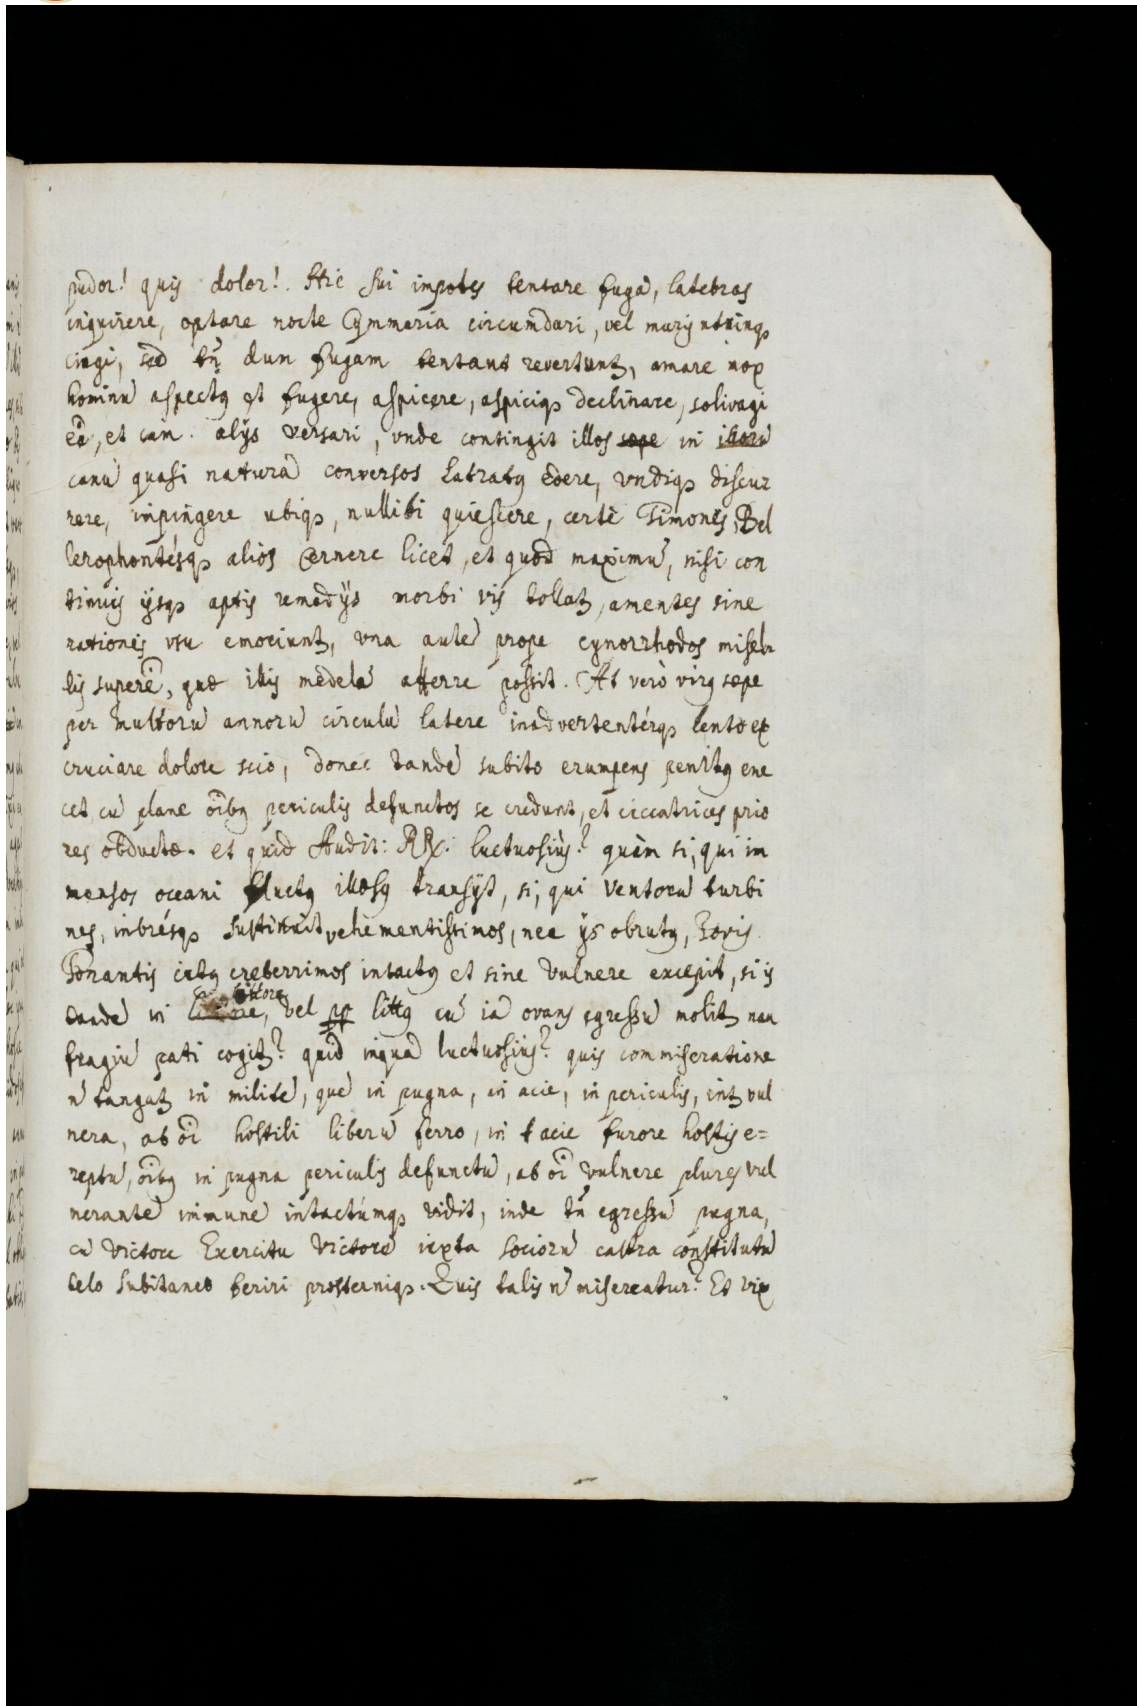 pudor! quis dolor! Hic sui impotes tentare fugã, latebras
inquirere, optare nocte Cymmaria circumdari, vel muris utrinqꝫ
cingi, sed tñ dum fugam tentant revertunt, amare mox
hominũ aspectꝰ et fugere, aspicere, aspiciqꝫ declinare, solivagi
eã, et cum alijs versari, vnde contingit illos sæpe in
canũ quasi naturã conversos latratꝰ edere, vndiqꝫ discur
rere, impingere ubiqꝫ, nullibi quiescere, certè Timones, Bel
lerophontésqꝫ alios cernere licet, et quod maximũ, nisi con
tinuis ijsqꝫ aptis remedijs morbi vis tollat, amentes sine
rationis vsu emoriunt, vna autẽ prope cynorrhodos misel
lis superẽ, quæ illis medelã afferre possit. At verò virꝰ sæpe
per multorũ annorũ circulũ latere inadvertentérqꝫ lento ex
cruciare dolore scio, donec tandẽ subito erumpens penitꝰ ene
cet, cũ plane oĩbꝰ periculis defunctos se credunt, et ciccatrices prio
res obductæ. et quid Audit: RR: luctuosiùs? quàm si, qui im
mensos oceani fluctꝰ illæsꝰ transijt, si, qui Ventorũ turbi
nes, inbrésqꝫ sustinuit vehementissimos, nec ijs obrutꝰ, Iovis
Tonantis ictꝰ creberrimos intactꝰ et sine Vulnere excepit, si is
tandẽ in littore, vel littꝰ cũ iã ovans egressũ molit nau
fragiũ pati cogit? quid inquã luctuosius? quis commiseratione
ñ tangat in militẽ, quẽ in pugna, in acie, in periculis, int vul
nera, ab oĩ hostili liberũ ferro, in acie furore hostis e=
reptũ, oĩbꝰ in pugna periculis defunctũ, ab oĩ vulnere plures vul
nerantẽ immunẽ intactúmqꝫ vidit, inde tñ egressũ pugna,
cũ Victore Exercitu Victorẽ iuxta sociorũ castra constitutũ
telo subitaneo feriri prosterniqꝫ. Quis talis ñ misereatur? Et vix